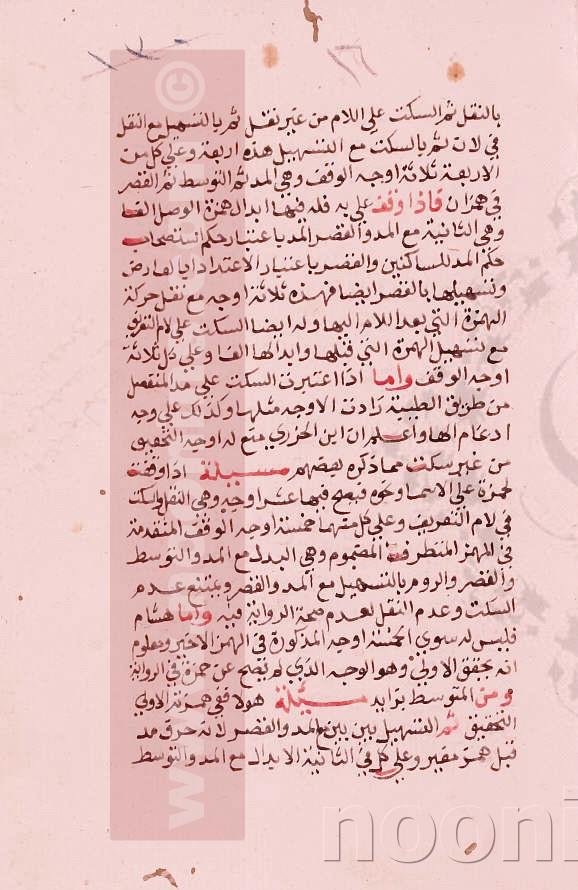 بالنقل ثم السكت على اللام من غير نقل ثم بالتسهيل مع النقل
في لات ثم بالسكت مع التسهيل هذه اربعة وعلى كل من
الاربعة ثلاثة اوجه الوقف وهي المد ثم التوسط ثم القصر
في همزان فاذا وقف على به فله فيها ابدال همزة الوصل الفا
وهي الثانية مع المد والقصر المد باعتبار حكم استصحاب
حكم المد للساكنين والقصر باعتبار الاعتداد ايا لعارض
وتسهيلها بالقصر ايضا فهذه ثلاثة اوجه مع نقل حركة
الهمزة التي بعد اللام اليها وله ايضا السكت على لام التعريف
مع تسهيل الهمزة التي قبلها وابدالها الفا وعلى كل ثلاثة
اوجه الوقف واما اذا اعتبرت السكت على مد المنفصل
من طرق الطيبة زادت الاوجه مثلها وكذلك على وجه
ادغام الها واعلم ان ابن الجزري منع له اوجه التحقيق
من غير سكت مما ذكره بعضهم مسيلة اذا وقفت
لحمزة على الاسما وجوه فيصح فيها عشر اوجه وهي النقل والسكت
في لام التعريف وعلى كل منهما خمسة اوجه الوقف المتقدمة
في الهمز المتطرف المضموم وهي البدل مع المد والتوسط
والقصر والروم بالتسهيل مع المد والقصر ويمتنع عدم
السكت وعدم النقل لعدم صحة الرواية فيه واما هشام
فليس له سوي الخمسة اوجه المذكورة في الهمز الاخير ومعلوم
انه يحقق الاولى وهو الوجه الذي لم يصح عن حمزة في الرواية
ومن المتوسط بزايد مسئلة هولا ففي همزته الاولي
التحقيق ثم التسهيل بين بين مع المد والقصر لانه حرف مد
قبل همز مغير وعلى كل في الثانية الابدال مع المد والتوسط
nooni